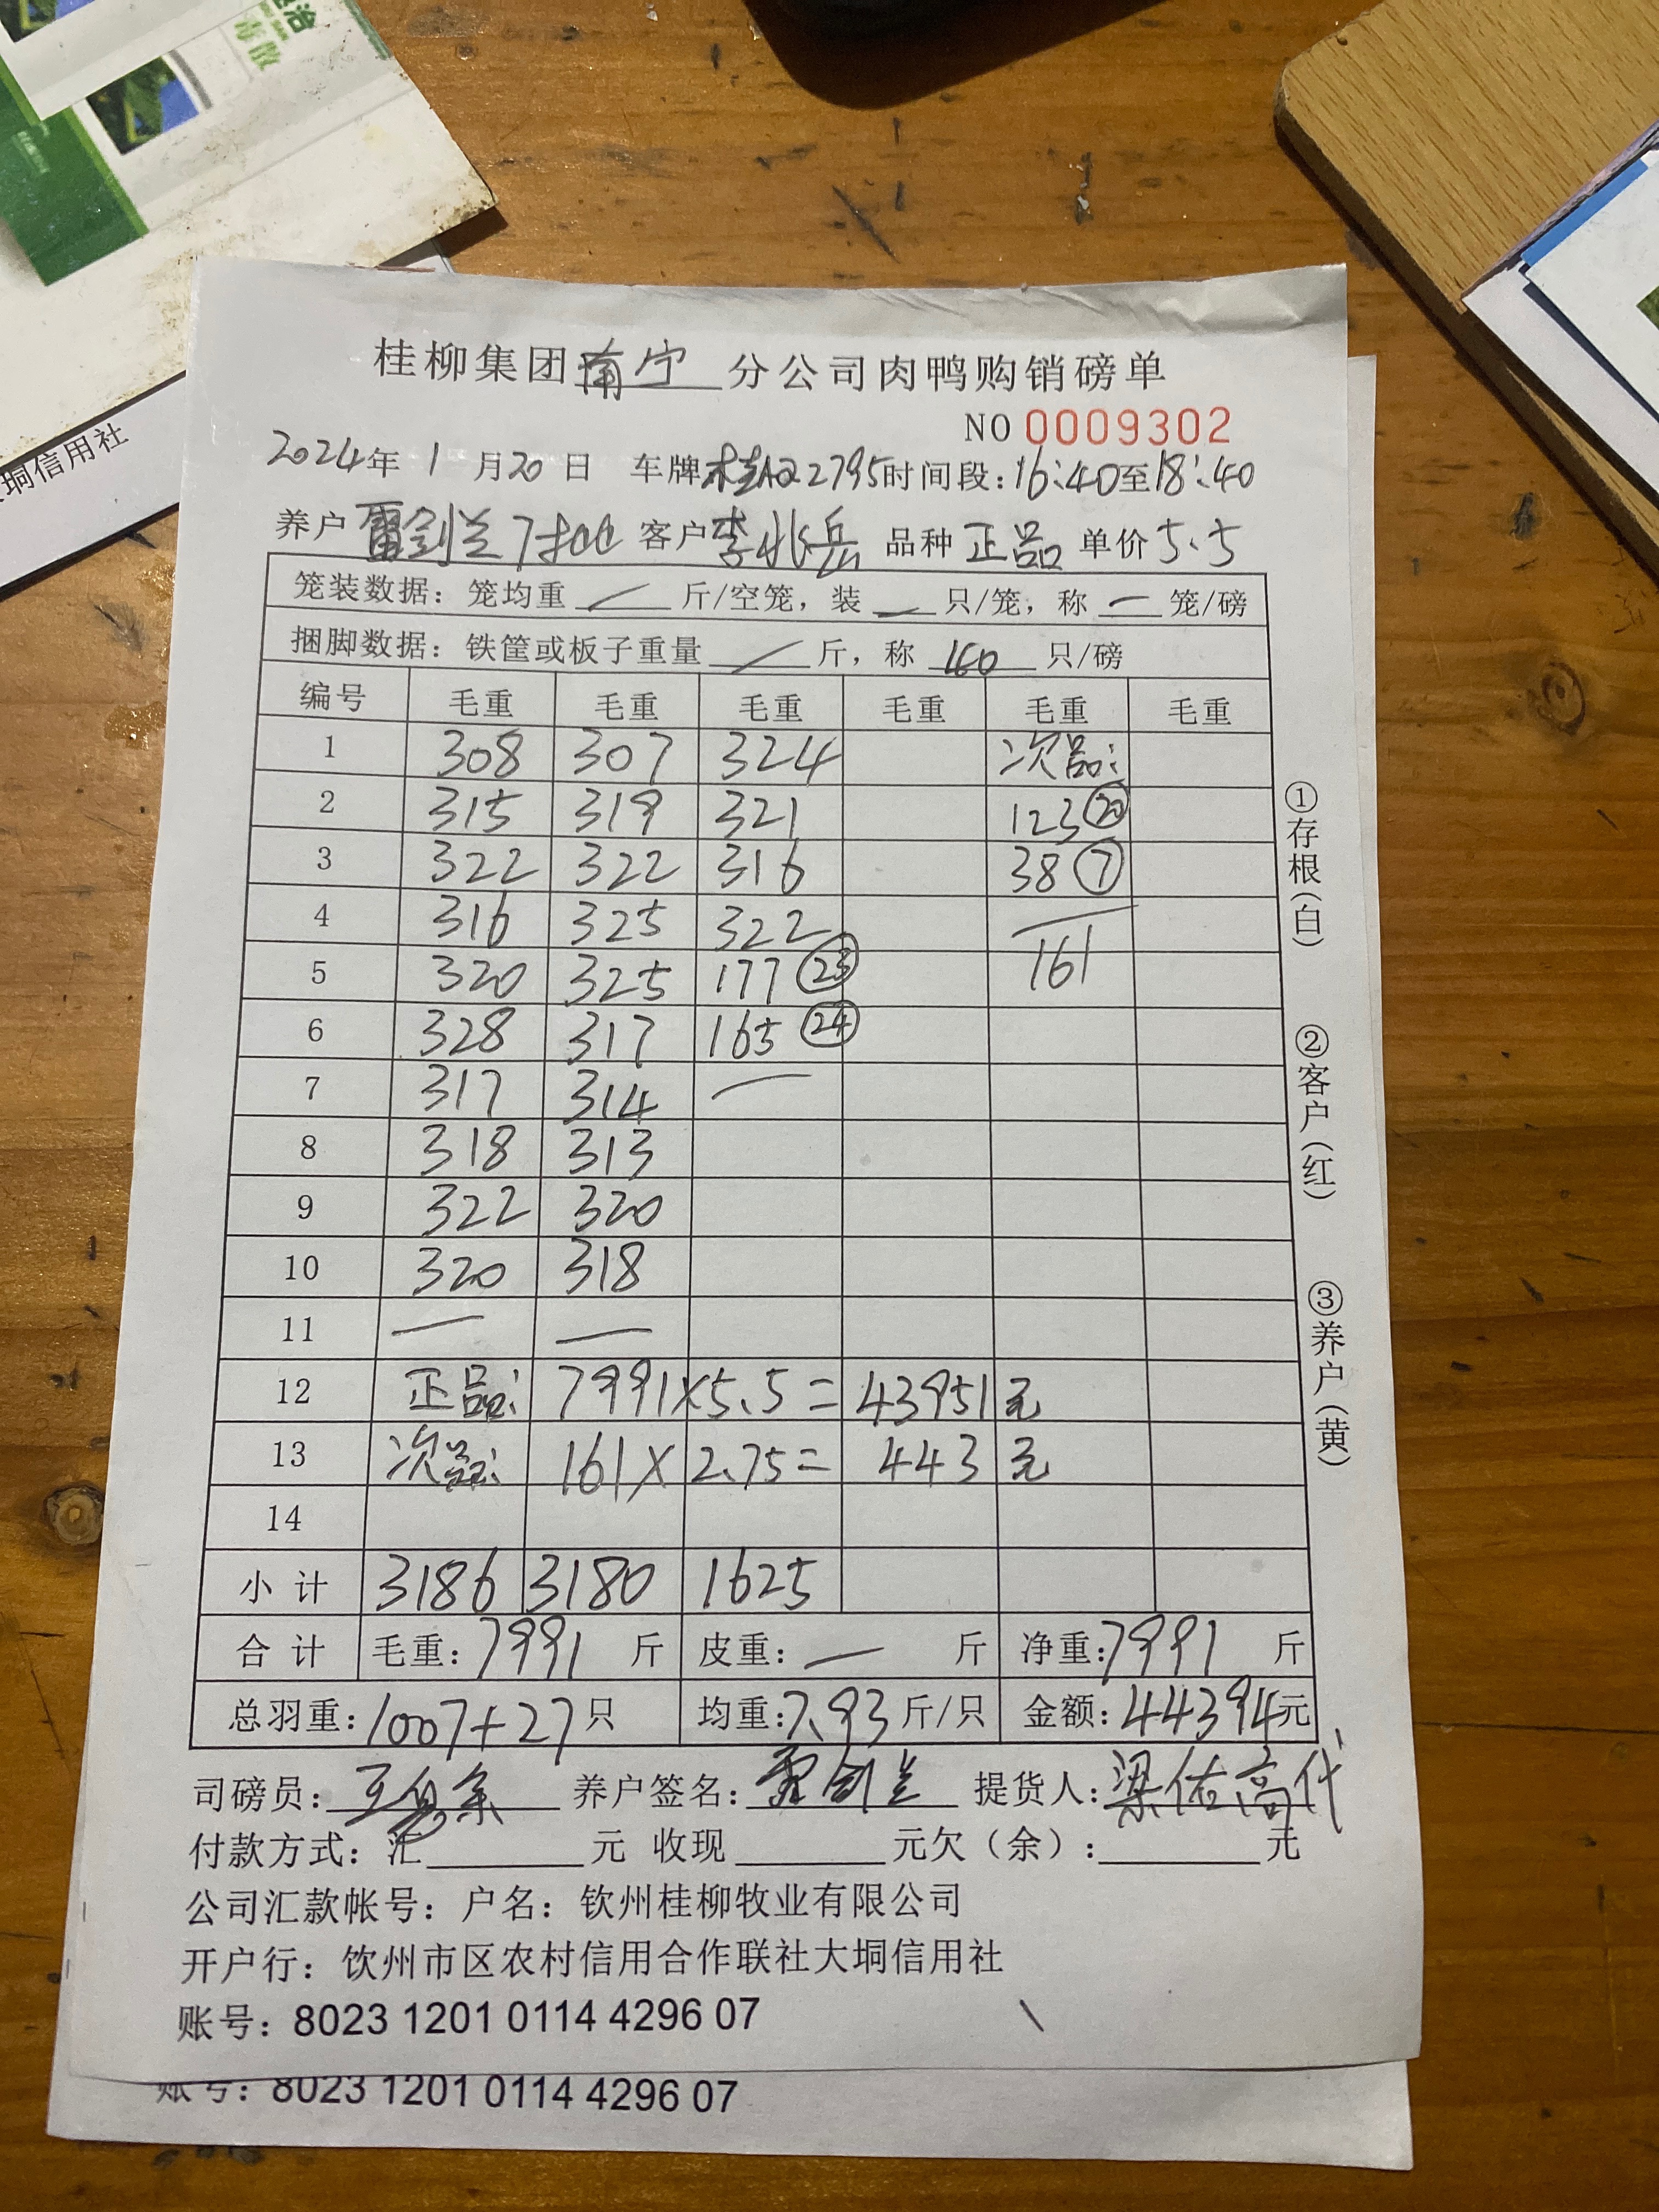 治
毒散
垌信用社
桂柳集团南宁分公司肉鸭购销磅单
NO 0009302
2024年 1 月 20 日 车牌桂AQ2795时间段:16:40至18:40
养户 雷剑兰 客户 李兆岳 品种 正品 单价 5.5
笼装数据:笼均重 — 斤/空笼,装 — 只/笼,称 — 笼/磅
捆脚数据:铁筐或板子重量 — 斤,称 160 只/磅
编号 毛重 毛重 毛重 毛重 毛重 毛重
1 308 307 324 次品:
2 315 319 321 123 ⑳
3 322 322 316 38 ⑦
4 316 325 322 —
5 320 325 177 ㉓ 161
6 328 317 165 ㉔
7 317 314 —
8 318 313
9 322 320
10 320 318
11 — —
12 正品: 7991×5.5= 43951元
13 次品: 161×2.75= 443元
14
小计 3186 3180 1625
合计 毛重:7991 斤 皮重:— 斤 净重:7991 斤
总羽重:1007+27只 均重:7.93斤/只 金额:44394元
司磅员: 养户签名:雷剑兰 提货人:梁佑高代
付款方式:汇 元 收现 元欠(余): 元
公司汇款帐号:户名:钦州桂柳牧业有限公司
开户行:饮州市区农村信用合作联社大垌信用社
账号:8023 1201 0114 4296 07
①存根(白)
②客户(红)
③养户(黄)
账号:8023 1201 0114 4296 07